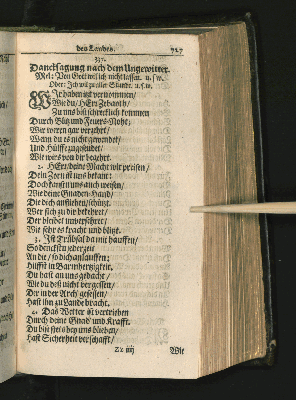 den Landes. 727
331.
Dancksagung nach dem Ungewitter.
Mel: Von Gott wil ich nicht lassen. u. s. w.
Oder: Ich wil zu aller Stunde. u. s. w.
WIr haben itzt vernommen/
Wie du/ HErr Zebaoth/
Zu uns bist schrecklich kommen
Durch Blitz und Feuers-Noht;
Wir weren gar verzehrt/
Wenn du es nicht gewendet/
Und Hülff zugesendet/
Wie wirs von dir begehrt.
2. HErr/ deine Macht wir preisen/
Dein Zorn ist uns bekant:
Doch kanst du uns auch weisen/
Wie deine Gnaden-Hand/
Die dich anflehen/ schützt.
Wer sich zu dir bekehret/
Der bleibet unversehret/
Wie sehr es kracht und blitzt.
3. Ist Trübsal da mit hauffen/
Gedenckstu jederzeit
An die/ so dich anlauffen;
Hilffst in Barmhertzigkeit.
Du hast an uns gedacht/
Wie du des nicht vergessen/
Der in der Arch gesessen/
Hast ihn zu Lande bracht.
4. Das Wetter ist vertrieben
Durch deine Gnad und Krafft.
Du bist stets bey uns blieben/
Hast Sicherheit verschafft/
Wie